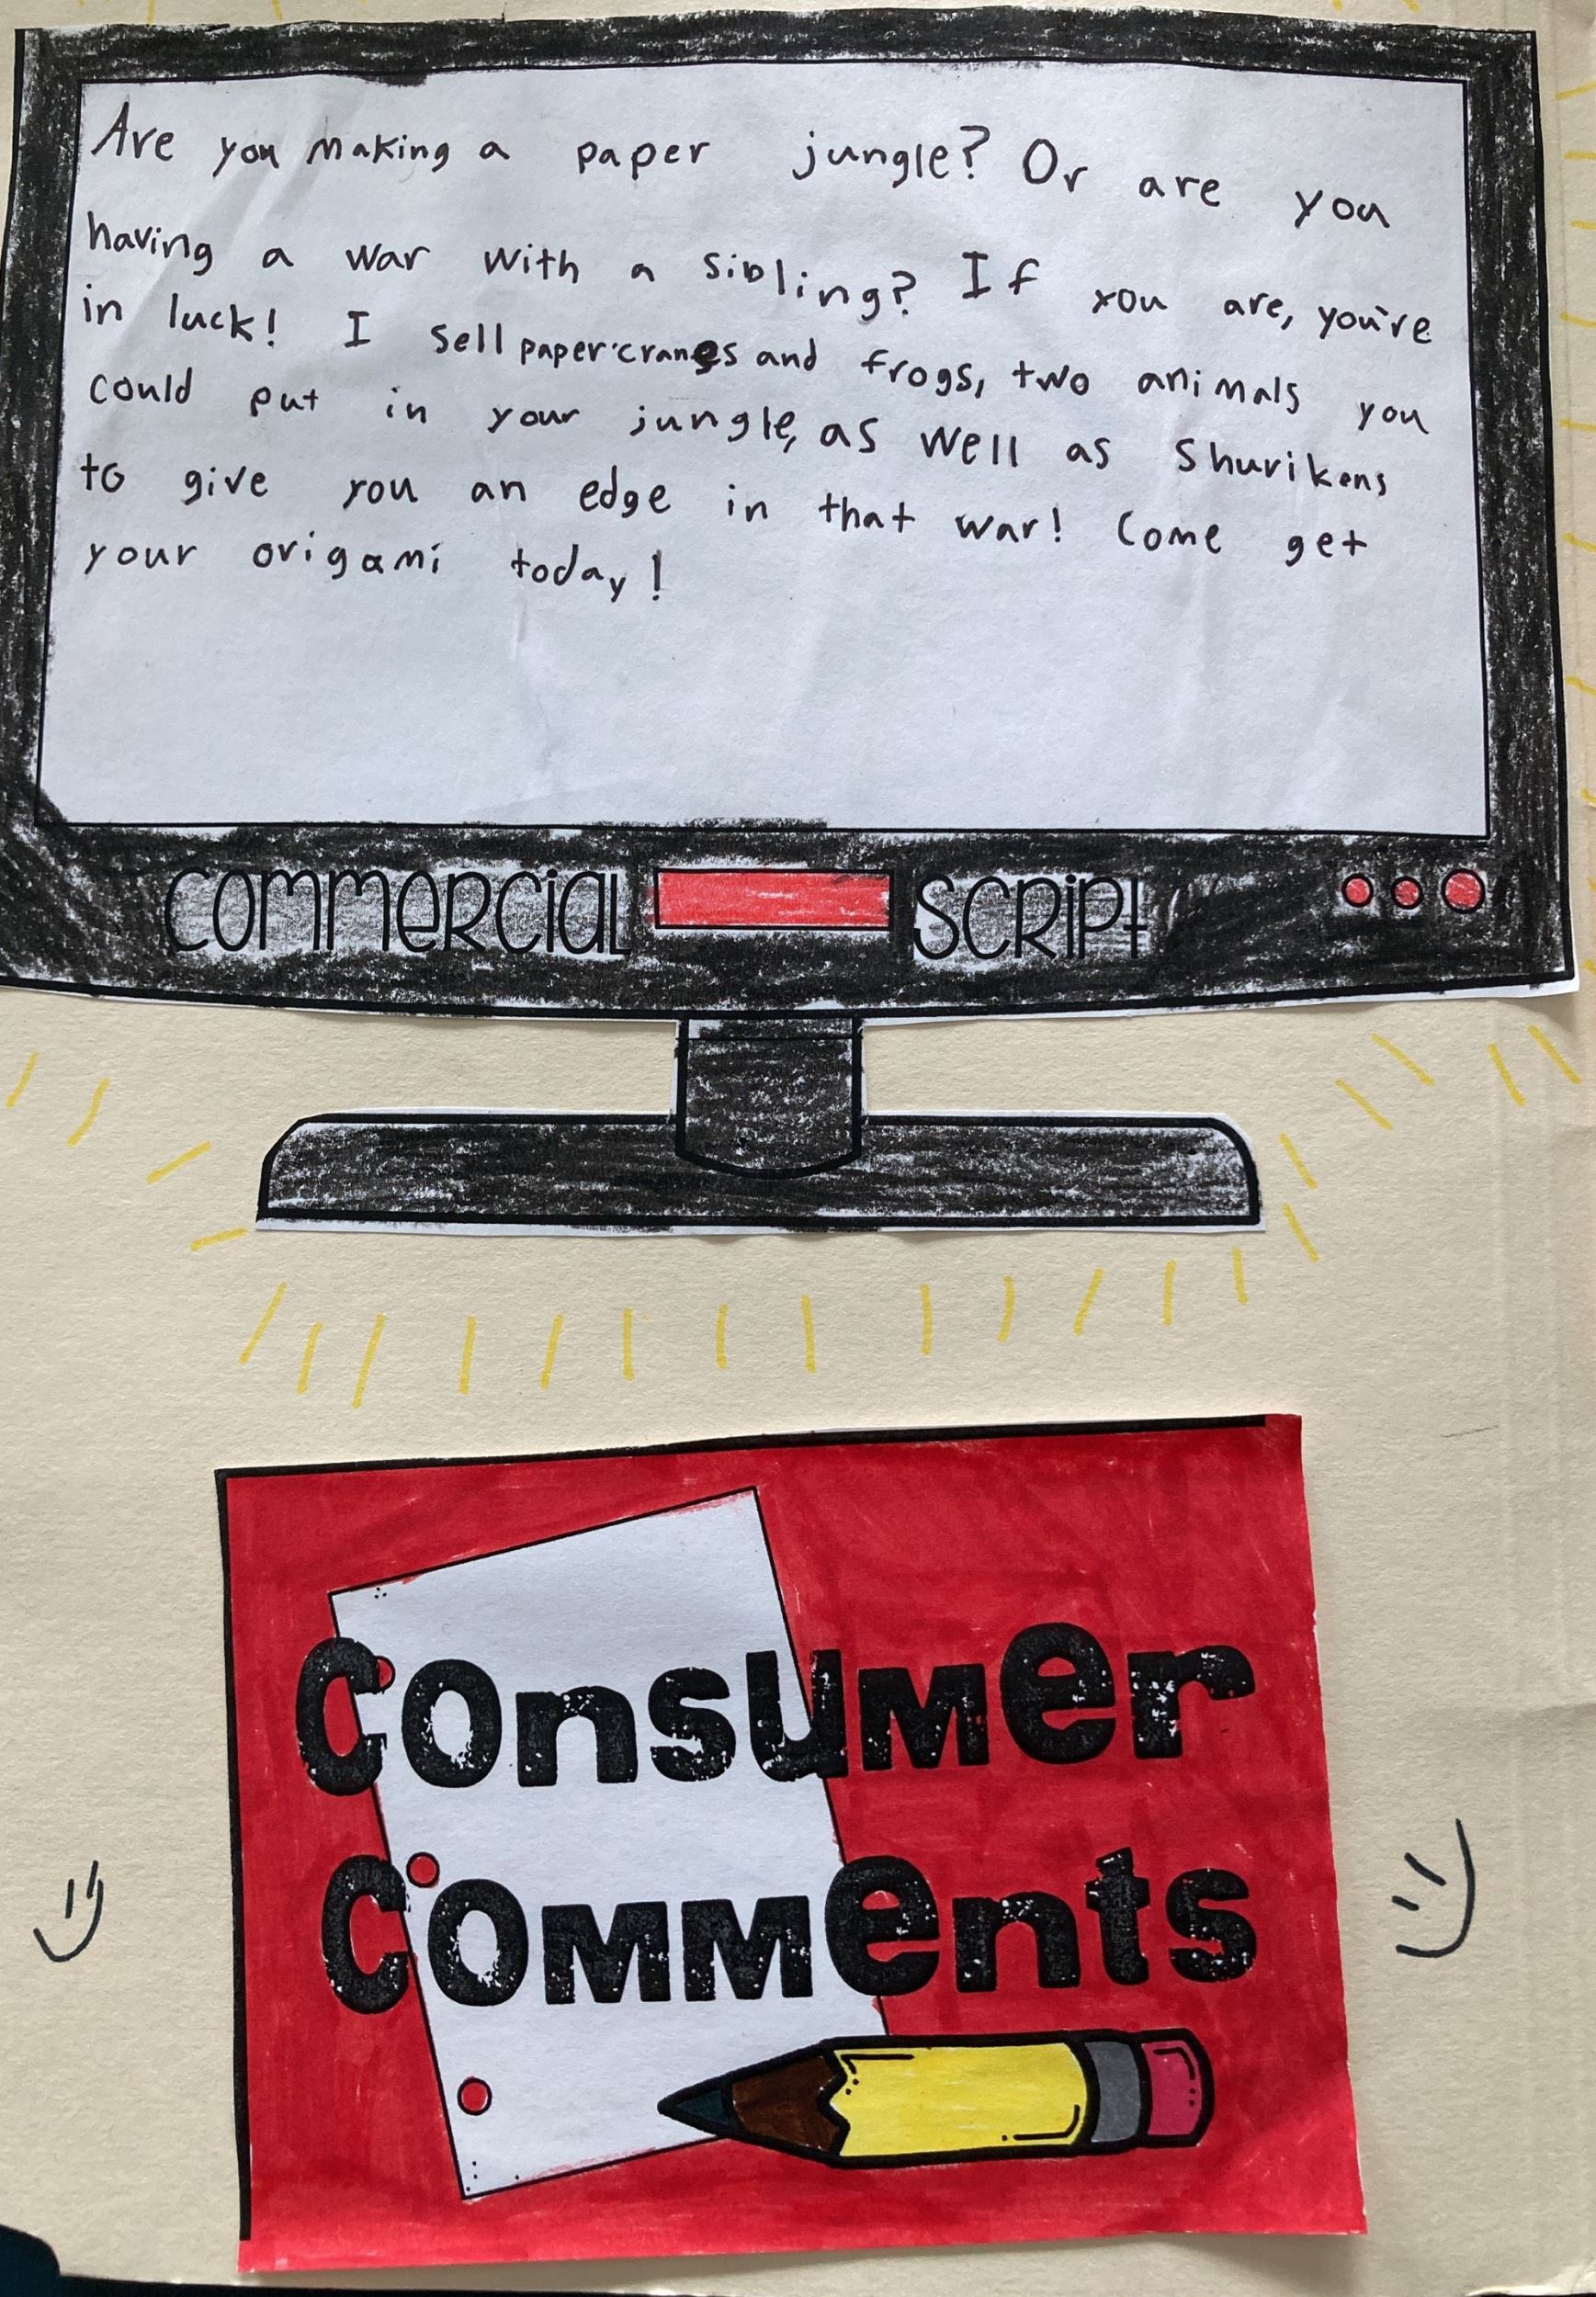 Are you making a paper jungle? Or are you
having a war with a sibling? If you are, you're
in luck! I sell paper cranes and frogs, two animals you
could put in your jungle, as well as Shurikens
to give you an edge in that war! Come get
your origami today!
COMMERCIAL SCRIPT
Consumer
Comments